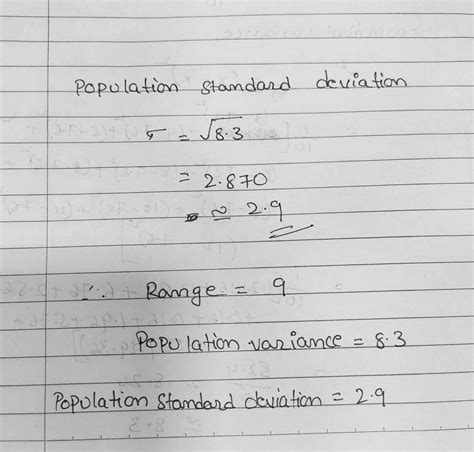 Population standard deviation
σ = √8.3
= 2.870
≈ 2.9
∴ Range = 9
Population variance = 8.3
Population Standard deviation = 2.9